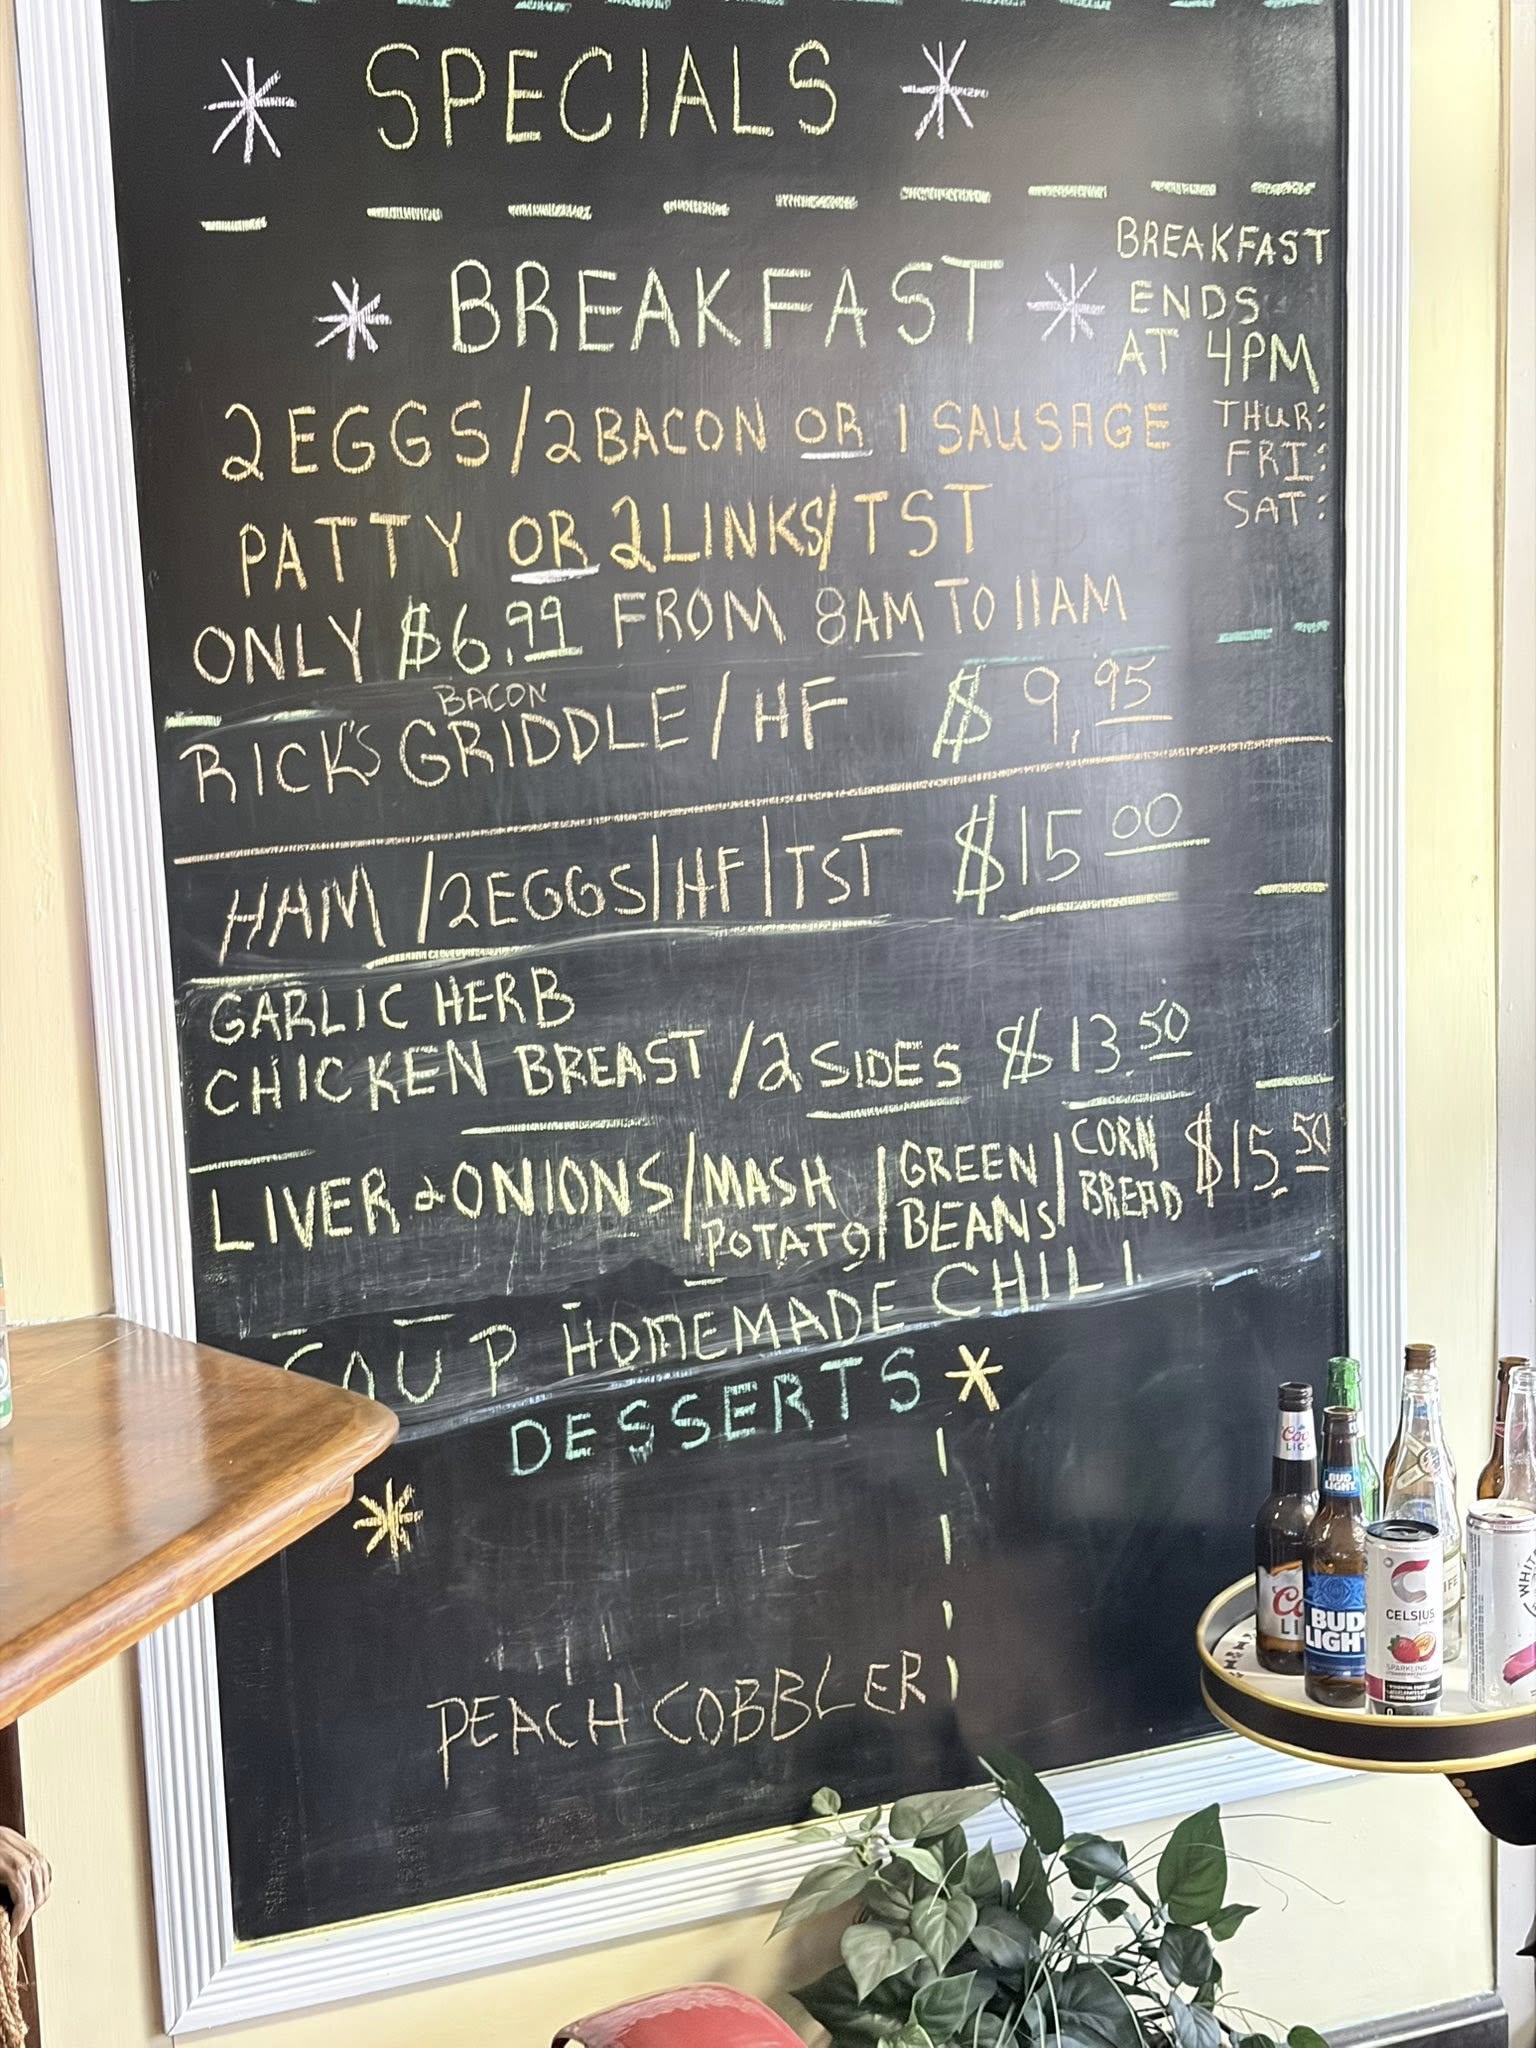 SPECIALS
BREAKFAST
BREAKFAST
ENDS
AT 4PM
THUR:
FRI:
SAT:
2 EGGS / 2 BACON OR 1 SAUSAGE
PATTY OR 2 LINKS / TST
ONLY $6.99 FROM 8AM TO 11AM
BACON
RICK'S GRIDDLE / HF $9.95
HAM / 2 EGGS / HF / TST $15.00
GARLIC HERB
CHICKEN BREAST / 2 SIDES $13.50
LIVER & ONIONS / MASH POTATO / GREEN BEANS / CORN BREAD $15.50
SOUP HOMEMADE CHILI
DESSERTS
PEACH COBBLER
Coo
LIGH
BUD
LIGHT
BUD
LIGHT
LI
CELSIUS
SPARKLING
WHIT